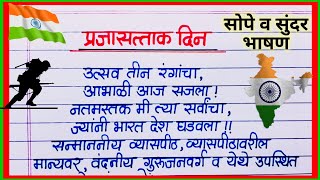 सोपे व सुंदर
भाषण
प्रजासत्ताक दिन
उत्सव तीन रंगांचा,
आभाळी आज सजला!
नतमस्तक मी त्या सर्वांचा,
ज्यांनी भारत देश घडवला!!
सन्माननीय व्यासपीठ, व्यासपीठावरील
मान्यवर, वंदनीय गुरूजनवर्ग व येथे उपस्थित